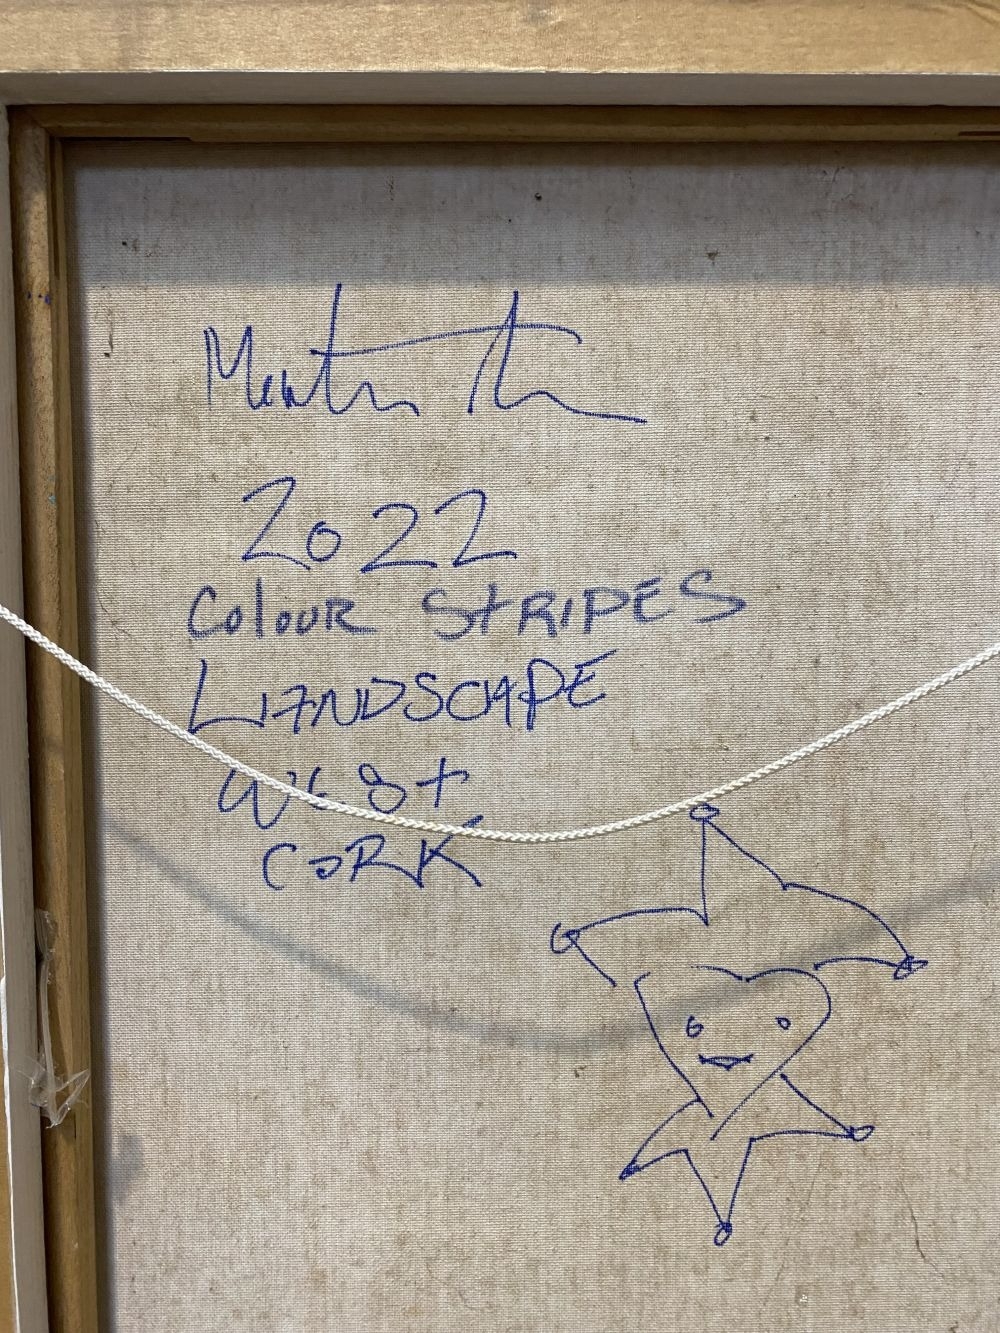 2022
Colour STRIPES
LANDSCAPE
West
CORK